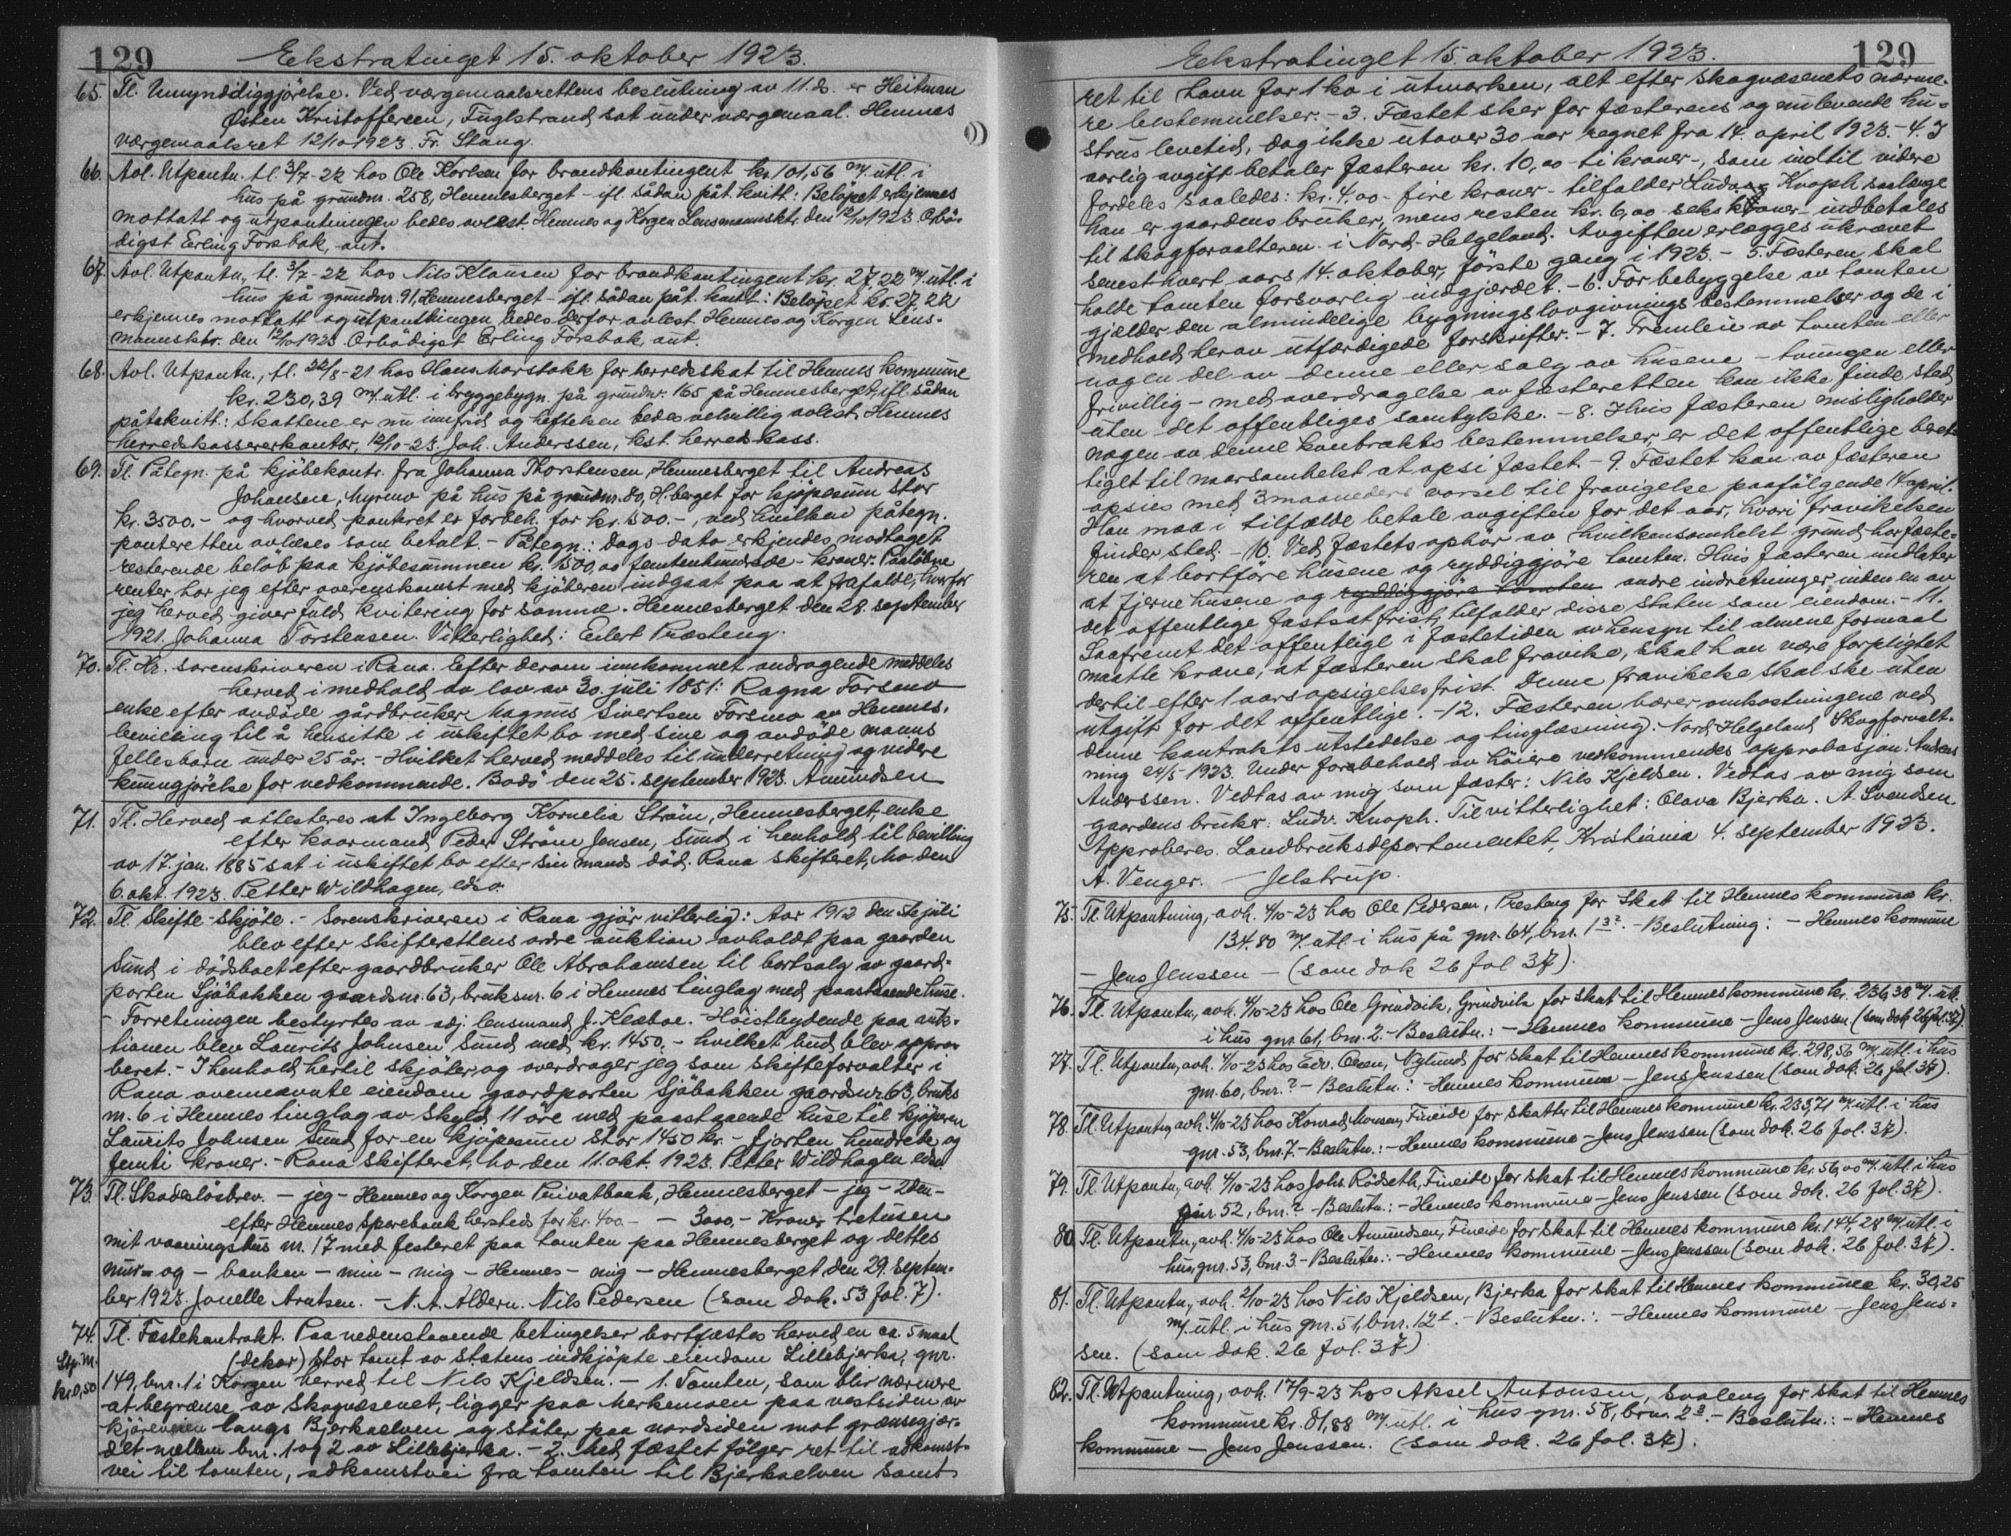 129 Ekstratinget 15. oktober 1923.
65. Tl. Umyndiggjørelse. Ved værgemaalsrettens beslutning av 11. ds. er Heitman
Østen Kristoffersen, Fuglstrand sat under værgemaal. Hemnes
værgemaalsret 12/10 1923. Fr. Stang.
66. Avl. Utpantn. tl. 3/7-22 hos Ole Korlsen for brandkontingent kr. 101,56 m/ utl. i
hus på grundnr. 258, Hemnesberget - ifl. sådan påt. kvitt: Beløpet erkjennes
mottatt og utpantningen bedes avlest. Hemnes og Korgen Lensmannsktr. den 12/10 1923. Ærbø-
digst Erling Forsbak, aut.
67. Avl. Utpantn. tl. 3/7-22 hos Nils Klausen for brandkontingent kr. 27,22 m/ utl. i
hus på grundnr. 91, Hemnesberget - ifl. sådan påt. kvitt: Beløpet kr. 27,22
erkjennes mottatt og utpantningen bedes derfor avlest. Hemnes og Korgen Lens-
mannsktr. den 12/10 1923. Ærbødigst Erling Forsbak, aut.
68. Avl. Utpantn., tl. 22/8-21 hos Olaus Marstakk for herredskat til Hemnes kommune
kr. 230,39 m/ utl. i bryggebygn. på grundnr. 165 på Hemnesberget, ifl. sådan
påtekvitt: Skattene er nu innfrid og heftelsen bedes velvillig avlest. Hemnes
herredskassererkontor, 12/10-23. Joh. Anderssen, kst. herredskass.
69. Tl. Påtegn. på kjøbekontr. fra Johanna Thorstensen, Hemnesberget til Andreas
Johansen, Myrmo på hus på grundnr. 80, H.berget for kjøpesum stor
kr. 3500.- og hvorved panteret er forbeh. for kr. 1500.-, ved hvilken påtegn.
panteretten avlæses som betalt. - Påtegn.: Dags dato erkjendes modtaget
resterende beløb paa kjøbesummen kr. 1500,00 femtenhundrede - kroner. Paaløbne
renter har jeg efter overenskomst med kjøberen indgaat paa at frafalde, hvorfor
jeg herved giver fuld kvitering for samme. Hemnesberget den 28. september
1921. Johanna Torstensen. Vitterlighed: Eilert Præsteng.
70. Tl. Hr. sorenskriveren i Rana. Efter derom innkommet andragende meddeles
herved i medhold av lov av 30. juli 1851: Ragna Forsmo
enke efter avdøde gårdbruker Magnus Sivertsen Forsmo av Hemnes,
bevilling til å hensitte i uskiftet bo med sine og avdøde manns
fellesbarn under 25 år. - Hvilket herved meddeles til underretning og videre
kunngjørelse for vedkommende. Bodø den 25. september 1923. Amundsen
71. Tl. Herved attesteres at Ingeborg Kornelia Strøm, Hemnesberget, enke
efter kaarmand Peder Strøm Jensen, Sund i henhold til bevilling
av 17. jan. 1885 sat i uskiftet bo efter sin mands død. Rana skifteret, Mo den
6. okt. 1923. Petter Wildhagen, edsv.
72. Tl. Skifte-skjøte. - Sorenskriveren i Rana gjør vitterlig: Aar 1912 den 5te juli
blev efter skifterettens ordre auktion avholdt paa gaarden
Sund i dødsboet efter gaardbruker Ole Abrahamsen til bortsalg av gaard-
parten Sjøbakken gaardsnr. 63, bruksnr. 6 i Hemnes tinglag med paastaaende huse.
- Forretningen bestyrtes av adj. lensmand J. Klæboe. - Høistbydende paa auk-
tionen blev Laurits Johnsen Sund med kr. 1450.- hvilket bud blev appro-
beret. - I henhold hertil skjøter og overdrager jeg som skifteforvalter i
Rana ovennævnte eiendom gaardparten Sjøbakken gaardsnr. 63, bruks-
nr. 6 i Hemnes tinglag av skyld 11 øre med paastaaende huse til kjøperen
Laurits Johnsen Sund for en kjøpesum stor 1450 kr. - fjorten hundrede og
femti kroner. - Rana skifteret, Mo den 11. okt. 1923. Petter Wildhagen edsv.
73. Tl. Skadesløsbrev. - jeg - Hemnes og Korgen Privatbank, Hemnesberget - jeg - 2den -
efter Hemnes Sparebank hersteds for kr. 400.- - 3000.- Kroner tretusen
mit vaaningshus nr. 17 med festeret paa tomten paa Hemnesberget og dettes
mur- og - banken - min - mig - Hemnes - mig - Hemnesberget den 29. septem-
ber 1923. Jonelle Arntsen. - N. A. Aldern. Nils Pedersen (som dok. 53 fol. 7).
74. Tl. Fæstekontrakt. Paa nedenstaaende betingelser bortfæstes herved en ca. 5 maal
Stp. M. (dekar) stor tomt av statens indkjøpte eiendom Lillebjerka, gnr.
kr. 0,50 149, bnr. 1 i Korgen herred til Nils Kjeldsen. - 1. Tomten, som blir nærmere
at begrænse av skogvæsenet, ligger paa Merkemoen paa vestsiden av
kjøreveien langs Bjerkaelven og støter paa nordsiden mot grænsegjær-
det mellem bnr. 1 og 2 av Lillebjerka. - 2. Med fæstet følger ret til adkomst-
vei til tomten, adkomstvei fra tomten til Bjerkaelven samt
Ekstratinget 15. oktober 1923. 129
ret til havn for 1 ko i utmarken, alt efter skogvæsenets nærme-
re bestemmelser. - 3. Fæstet sker for fæsterens og nulevende hu-
strus levetid, dog ikke utover 30 aar regnet fra 14. april 1923. - 4. I
aarlig avgift betaler fæsteren kr. 10,00 - ti kroner -, som indtil videre
fordeles saaledes: kr. 4.00 - fire kroner - tilfalder Ludvig Knoph saalænge
han er gaardens bruker, mens resten kr. 6,00 seks kroner - indbetales
til skogforvalteren i Nord-Helgeland. Avgiften erlægges ukrævet
senest hvert aars 14. oktober, første gang i 1923. - 5. Fæsteren skal
holde tomten forsvarlig indgjærdet. - 6. For bebyggelse av tomten
gjælder den almindelige bygningslovgivnings bestemmelser og de i
medhold herav utfærdigede forskrifter. - 7. Fremleie av tomten eller
nogen del av denne eller salg av husene - tvungen eller
frivillig - med overdragelse av fæsteretten kan ikke finde sted
uten det offentliges samtykke. - 8. Hvis fæsteren misligholder
nogen av denne kontrakts bestemmelser, er det offentlige beret-
tiget til naarsomhelst at opsi fæstet. - 9. Fæstet kan av fæsteren
opsies med 3 maaneders varsel til fravigelse paafølgende 14. april.
Han maa i tilfælde betale avgiften for det aar, hvori fravikelsen
finder sted. - 10. Ved fæstets ophør av hvilkensomhelst grund har fæste-
ren at bortføre husene og ryddiggjøre tomten. Hvis fæsteren undlater
at fjerne husene og ryddiggjøre tomten andre indretninger inden en av
det offentlige fastsat frist, tilfalder disse staten som eiendom. - 11.
Saafremt det offentlige i fæstetiden av hensyn til almene formaal
maatte kræve, at fæsteren skal fravike, skal han være forpligtet
dertil efter 1 aars opsigelsesfrist. Denne fravikelse skal ske uten
utgift for det offentlige. - 12. Fæsteren bærer omkostningene ved
denne kontrakts utstedelse og tinglæsning. Nord-Helgeland Skogforvalt-
ning 24/5-1923. Under forbehold av høiere vedkommendes approbasjon. Andreas
Anderssen. Vedtas av mig som fæster: Nils Kjeldsen. Vedtas av mig som
gaardens bruker: Ludv. Knoph. Til vitterlighet: Olava Bjerka. A. Svendsen.
Approberes. Landbruksdepartementet, Kristiania 4. september 1923.
A. Venger. Jelstrup.
75. Tl. Utpantning, avh. 4/10-23 hos Ole Pedersen, Presteng for skat til Hemnes kommune kr.
134.80 m/ utl. i hus på gnr. 64, bnr. 1 32. - Beslutning: - Hemnes kommune
- Jens Jenssen - (som dok 26 fol 37).
76. Tl. Utpantn., avh. 4/10-23 hos Ole Grindvik, Grindvik for skat til Hemnes kommune kr. 236,38 m/ utl.
i hus gnr. 61, bnr. 2. - Beslutn.: - Hemnes kommune - Jens Jenssen (som dok 26 fol. 37).
77. Tl. Utpantn., avh. 4/10-23 hos Edv. Olsen, Nylund for skat til Hemnes kommune kr. 298,56 m/ utl. i hus
gnr. 60, bnr. ? - Beslutn.: - Hemnes kommune - Jens Jenssen (som dok. 26 fol. 37).
78. Tl. Utpantn., avh. 4/10-23 hos Konrad Monsen, Fineide for skatter til Hemnes kommune kr. 233,71 m/ utl. i hus
gnr. 53, bnr. 7. - Beslutn.: - Hemnes kommune - Jens Jenssen (som dok. 26 fol. 37).
79. Tl. Utpantn., avh. 4/10-23 hos Johs. Rödseth, Fineide for skat til Hemnes kommune kr. 56,00 m/ utl. i hus
gnr. 52, bnr. ? - Beslutn.: - Hemnes kommune - Jens Jenssen (som dok. 26 fol. 37).
80. Tl. Utpantn., avh. 4/10-23 hos Ole Amundsen, Fineide for skat til Hemnes kommune kr. 144,28 m/ utl. i
hus, gnr. 53, bnr. 3. - Beslutn.: - Hemnes kommune - Jens Jenssen (som dok. 26 fol. 37).
81. Tl. Utpantn., avh. 2/10-23 hos Nils Kjeldsen, Bjerka for skat til Hemnes kommune kr. 30,25
m/ utl. i hus gnr. 51, bnr. 12 - Beslutn.: - Hemnes kommune - Jens Jens-
sen. (som dok. 26 fol. 37)
82. Tl. Utpantning, avh. 17/9-23 hos Aksel Antonsen, Svaleng for skat til Hemnes
kommune kr. 81,88 m/ utl. i hus gnr. 58, bnr. 2 3. - Beslutn.: - Hemnes
kommune - Jens Jenssen. (som dok. 26 fol. 37).